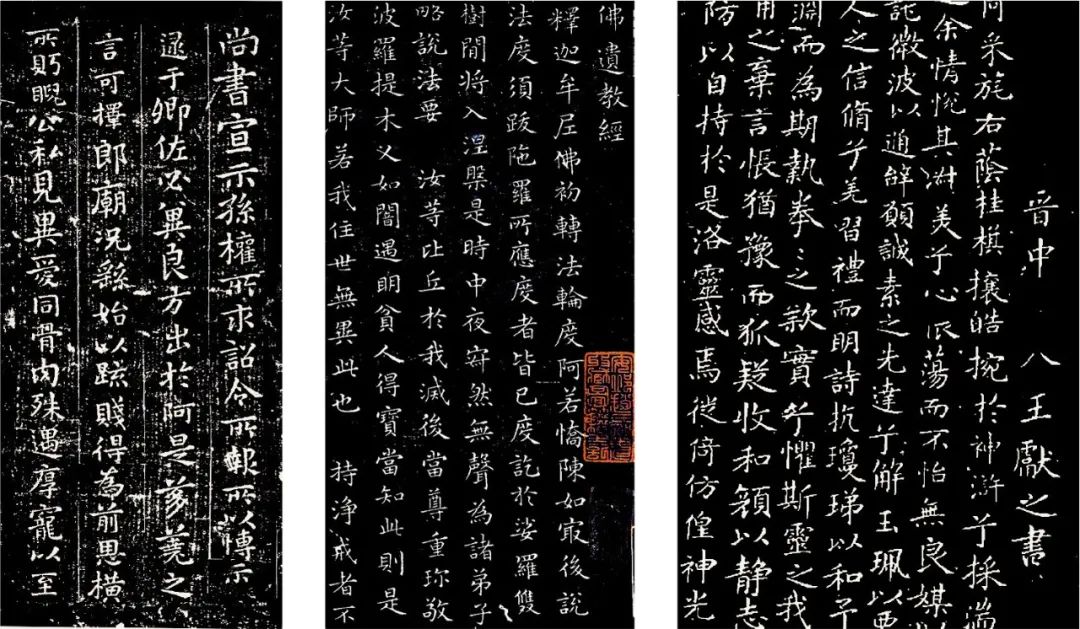 尚書宣示孫權所求詔令所報所以博示
逮于卿佐必冀良方出於阿是芻蕘之
言可擇郎廟況繇始以疏賤得為前恩橫
所眄睨公私見異愛同骨肉殊遇厚寵以至
佛遺教經
釋迦牟尼佛初轉法輪度阿若憍陳如寂後說
法度須跋陁羅所應度者皆已度訖於娑羅雙
樹間將入涅槃是時中夜寂然無聲為諸弟子
略說法要 汝等比丘於我滅後當尊重珎敬
波羅提木叉如闇遇明貧人得寶當知此則是
汝等大師若我住世無異此也 持淨戒者不
晉中 八王獻之書
采旄右蔭桂椇攘皓捥於神滸兮採湍
余情悅其淑美兮心振蕩而不怡無良媒以
託微波以通辭願誠素之先達兮解玉珮以要
人之信脩兮羌習禮而明詩抗瓊珶以和予
淵而為期執拳之款實兮懼斯靈之我
之棄言悵猶豫而狐疑收和顏以靜志
防以自持於是洛靈感焉徙倚仿偟神光